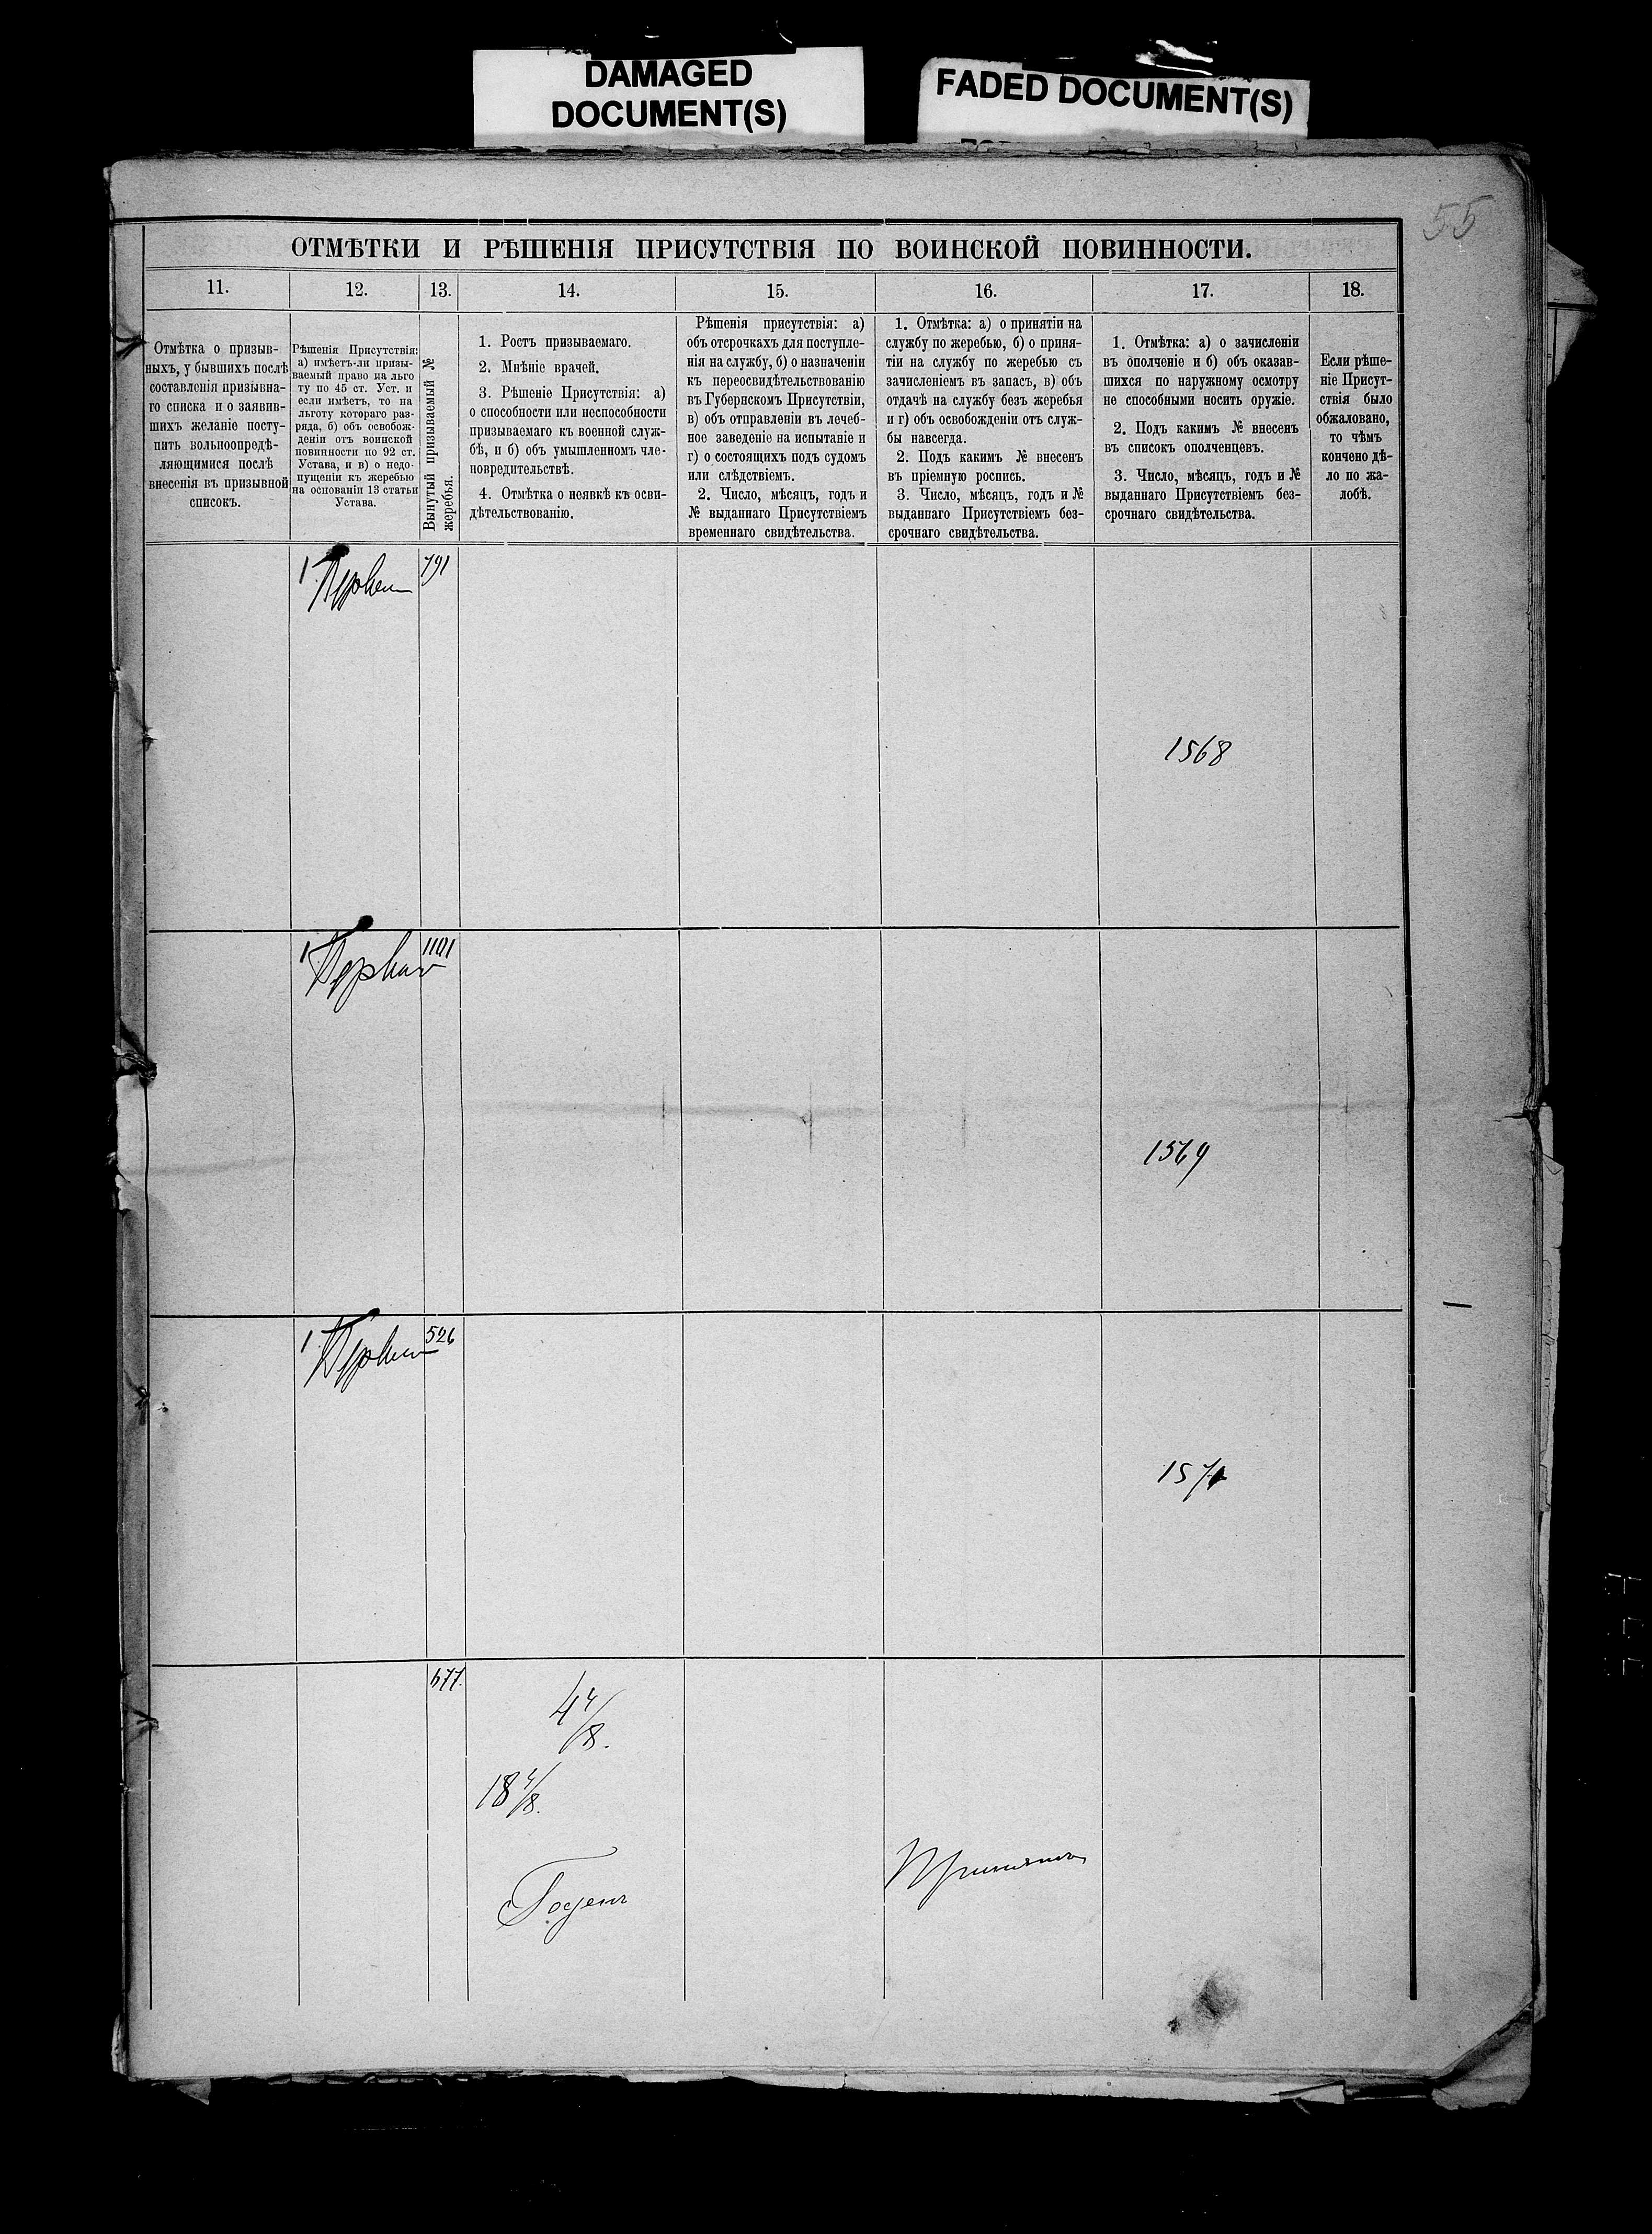 DAMAGED
DOCUMENT(S)
FADED DOCUMENT(S)
55
ОТМѢТКИ И РѢШЕНІЯ ПРИСУТСТВІЯ ПО ВОИНСКОЙ ПОВИННОСТИ.
11.
12.
13.
14.
15.
16.
17.
18.
Отмѣтка о призыв-
ныхъ, у бывшихъ послѣ
составленія призывна-
го списка и о заявив-
шихъ желаніе посту-
пить вольноопредѣ-
ляющимися послѣ
внесенія въ призывной
списокъ.
Рѣшенія Присутствія:
а) имѣетъ-ли призы-
ваемый право на льго
ту по 45 ст. Уст. и
если имѣетъ, то на
льготу котораго раз-
ряда, б) объ освобож-
деніи отъ воинской
повинности по 92 ст.
Устава, и в) о недо-
пущеніи къ жеребью
на основаніи 13 статьи
Устава.
Вынутый призываемый №
жеребья.
1. Ростъ призываемаго.
2. Мнѣніе врачей.
3. Рѣшеніе Присутствія: а)
о способности или неспособности
призываемаго къ военной служ-
бѣ, и б) объ умышленномъ чле-
новредительствѣ.
4. Отмѣтка о неявкѣ къ осви-
дѣтельствованію.
Рѣшенія присутствія: а)
объ отсрочкахъ для поступле-
нія на службу, б) о назначеніи
къ переосвидѣтельствованію
въ Губернскомъ Присутствіи,
в) объ отправленіи въ лечеб-
ное заведеніе на испытаніе и
г) о состоящихъ подъ судомъ
или слѣдствіемъ.
2. Число, мѣсяцъ, годъ и
№ выданнаго Присутствіемъ
временнаго свидѣтельства.
1. Отмѣтка: а) о принятіи на
службу по жеребью, б) о приня-
тіи на службу по жеребью съ
зачисленіемъ въ запасъ, в) объ
отдачѣ на службу безъ жеребья
и г) объ освобожденіи отъ служ-
бы навсегда.
2. Подъ какимъ № внесенъ
въ пріемную роспись.
3. Число, мѣсяцъ, годъ и №
выданнаго Присутствіемъ без-
срочнаго свидѣтельства.
1. Отмѣтка: а) о зачисленіи
въ ополченіе и б) объ оказав-
шихся по наружному осмотру
не способными носить оружіе.
2. Подъ какимъ № внесенъ
въ списокъ ополченцевъ.
3. Число, мѣсяцъ, годъ и №
выданнаго Присутствіемъ без-
срочнаго свидѣтельства.
Если рѣше-
ніе Присут-
ствія было
обжаловано,
то чѣмъ
кончено дѣ-
ло по жа-
лобѣ.
1
791
1568
1
1101
1569
1
526
677.
4 4/8.
18 4/8.
Годенъ
Принятъ